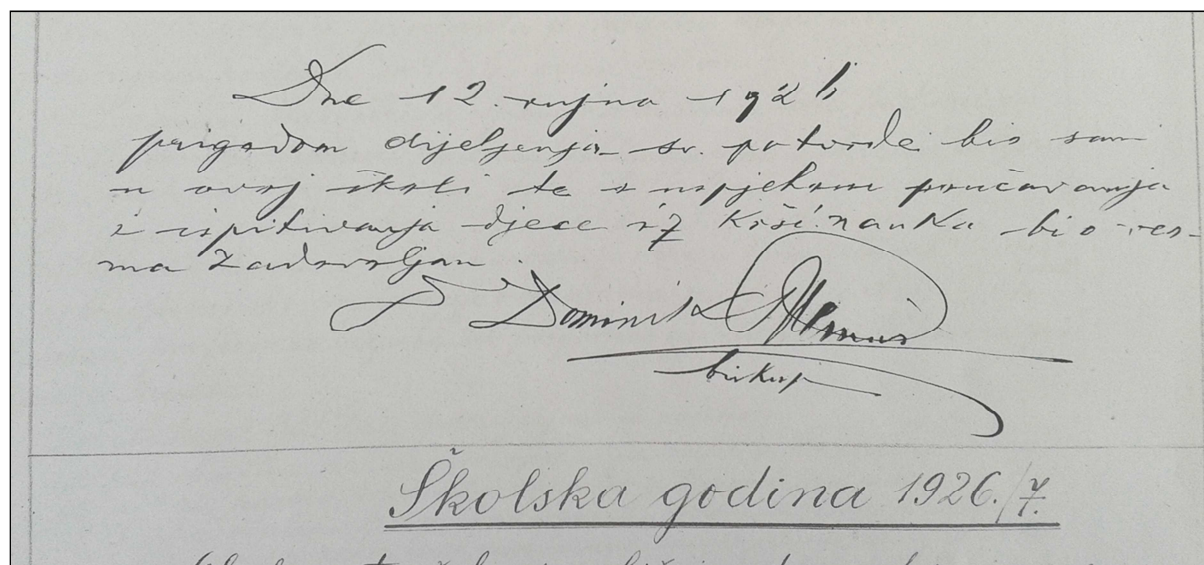 Dne 12. rujna 1926
prigodom dijeljenja sv. potvrde bio sam
u ovoj školi te s uspjehom poučavanja
i ispitivanja djece iz Kršć. nauka bio ves-
ma zadovoljan.
Dominik
biskup
Školska godina 1926./7.